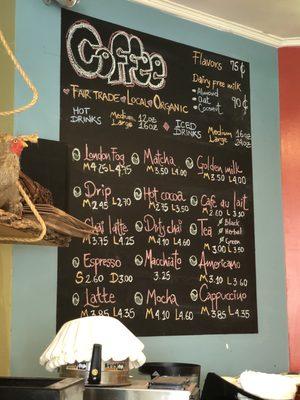 Coffee
Flavors 75¢
Dairy free milk
Almond
Oat
Coconut
90¢
Fair Trade Local Organic
HOT DRINKS
Medium 12oz
Large 16oz
ICED DRINKS
Medium 16oz
Large 24oz
London Fog
M 4.25 L 4.75
Matcha
M 3.50 L 4.50
Golden milk
M 3.50 L 4.00
Drip
M 2.45 L 2.70
Hot cocoa
M 2.75 L 3.50
Cafe du lait
M 2.60 L 3.50
Chai latte
M 3.75 L 4.25
Dirty chai
M 4.10 L 4.60
Tea
Black
Herbal
Green
M 3.00 L 3.50
Espresso
S 2.60 D 3.00
Macchiato
3.25
Americano
M 3.10 L 3.60
Latte
M 3.85 L 4.35
Mocha
M 4.10 L 4.60
Cappuccino
M 3.85 L 4.35